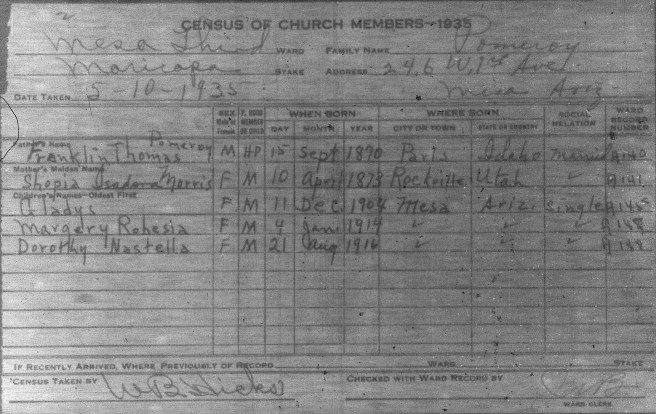 CENSUS OF CHURCH MEMBERS—1935
Mesa Third WARD FAMILY NAME Pomeroy
Maricopa STAKE ADDRESS 246 W. 1st Ave
DATE TAKEN 5-10-1935 Mesa Ariz
SEX Male or Female WHEN BORN WHERE BORN SOCIAL RELATION WARD RECORD NUMBER
DAY MONTH YEAR CITY OR TOWN STATE OR COUNTRY
Father's Name Pomeroy
Franklin Thomas M HP 15 Sept 1870 Paris Idaho married A 140
Mother's Maiden Name
Shopia Isadora Morris F M 10 April 1873 Rockville Utah " A 141
Children's Names—Oldest First
Gladys F M 11 Dec. 1904 Mesa Ariz. single
Margery Rohesia F M 4 Jan 1914 " " "
Dorothy Nastella F M 21 Aug 1916 " " "
IF RECENTLY ARRIVED, WHERE PREVIOUSLY OF RECORD WARD STAKE
CENSUS TAKEN BY W B Hicks CHECKED WITH WARD RECORD BY
WARD CLERK